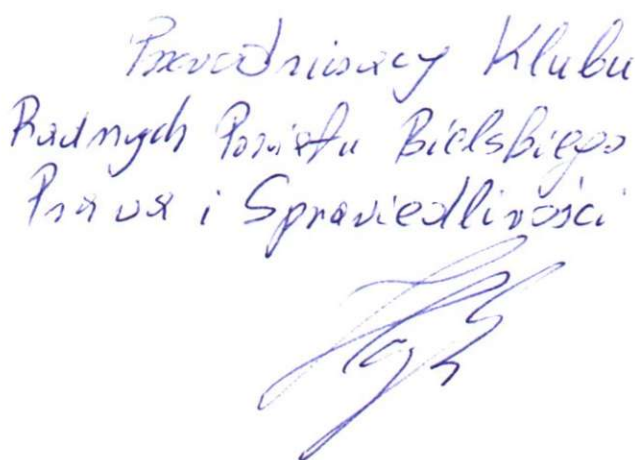 Przewodniczący Klubu
Radnych Powiatu Bielskiego
Prawa i Sprawiedliwości